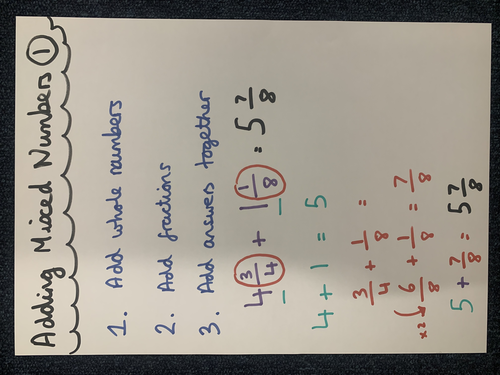 Adding Mixed Numbers ①
1. Add whole numbers
2. Add fractions
3. Add answers together
4 3/4 + 1 1/8 = 5 7/8
4 + 1 = 5
3/4 + 1/8 =
x2 6/8 + 1/8 = 7/8
5 + 7/8 = 5 7/8